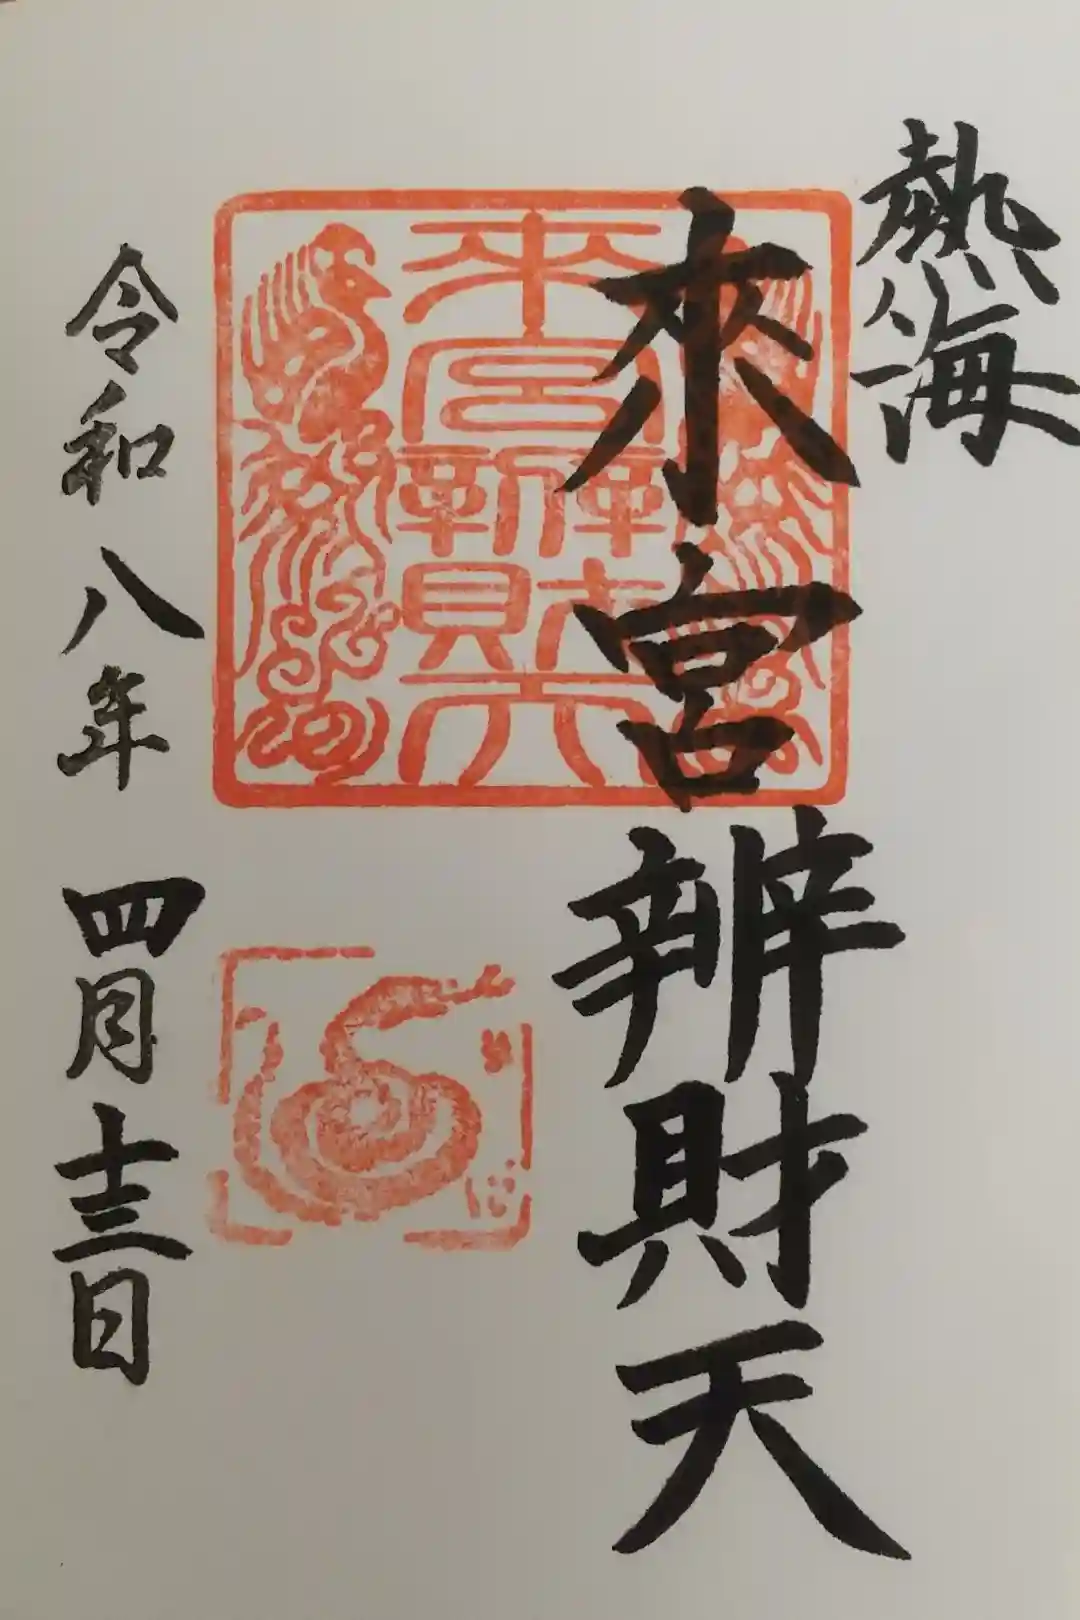 熱海
來宮辨財天
來宮辨財天
令和八年四月十三日